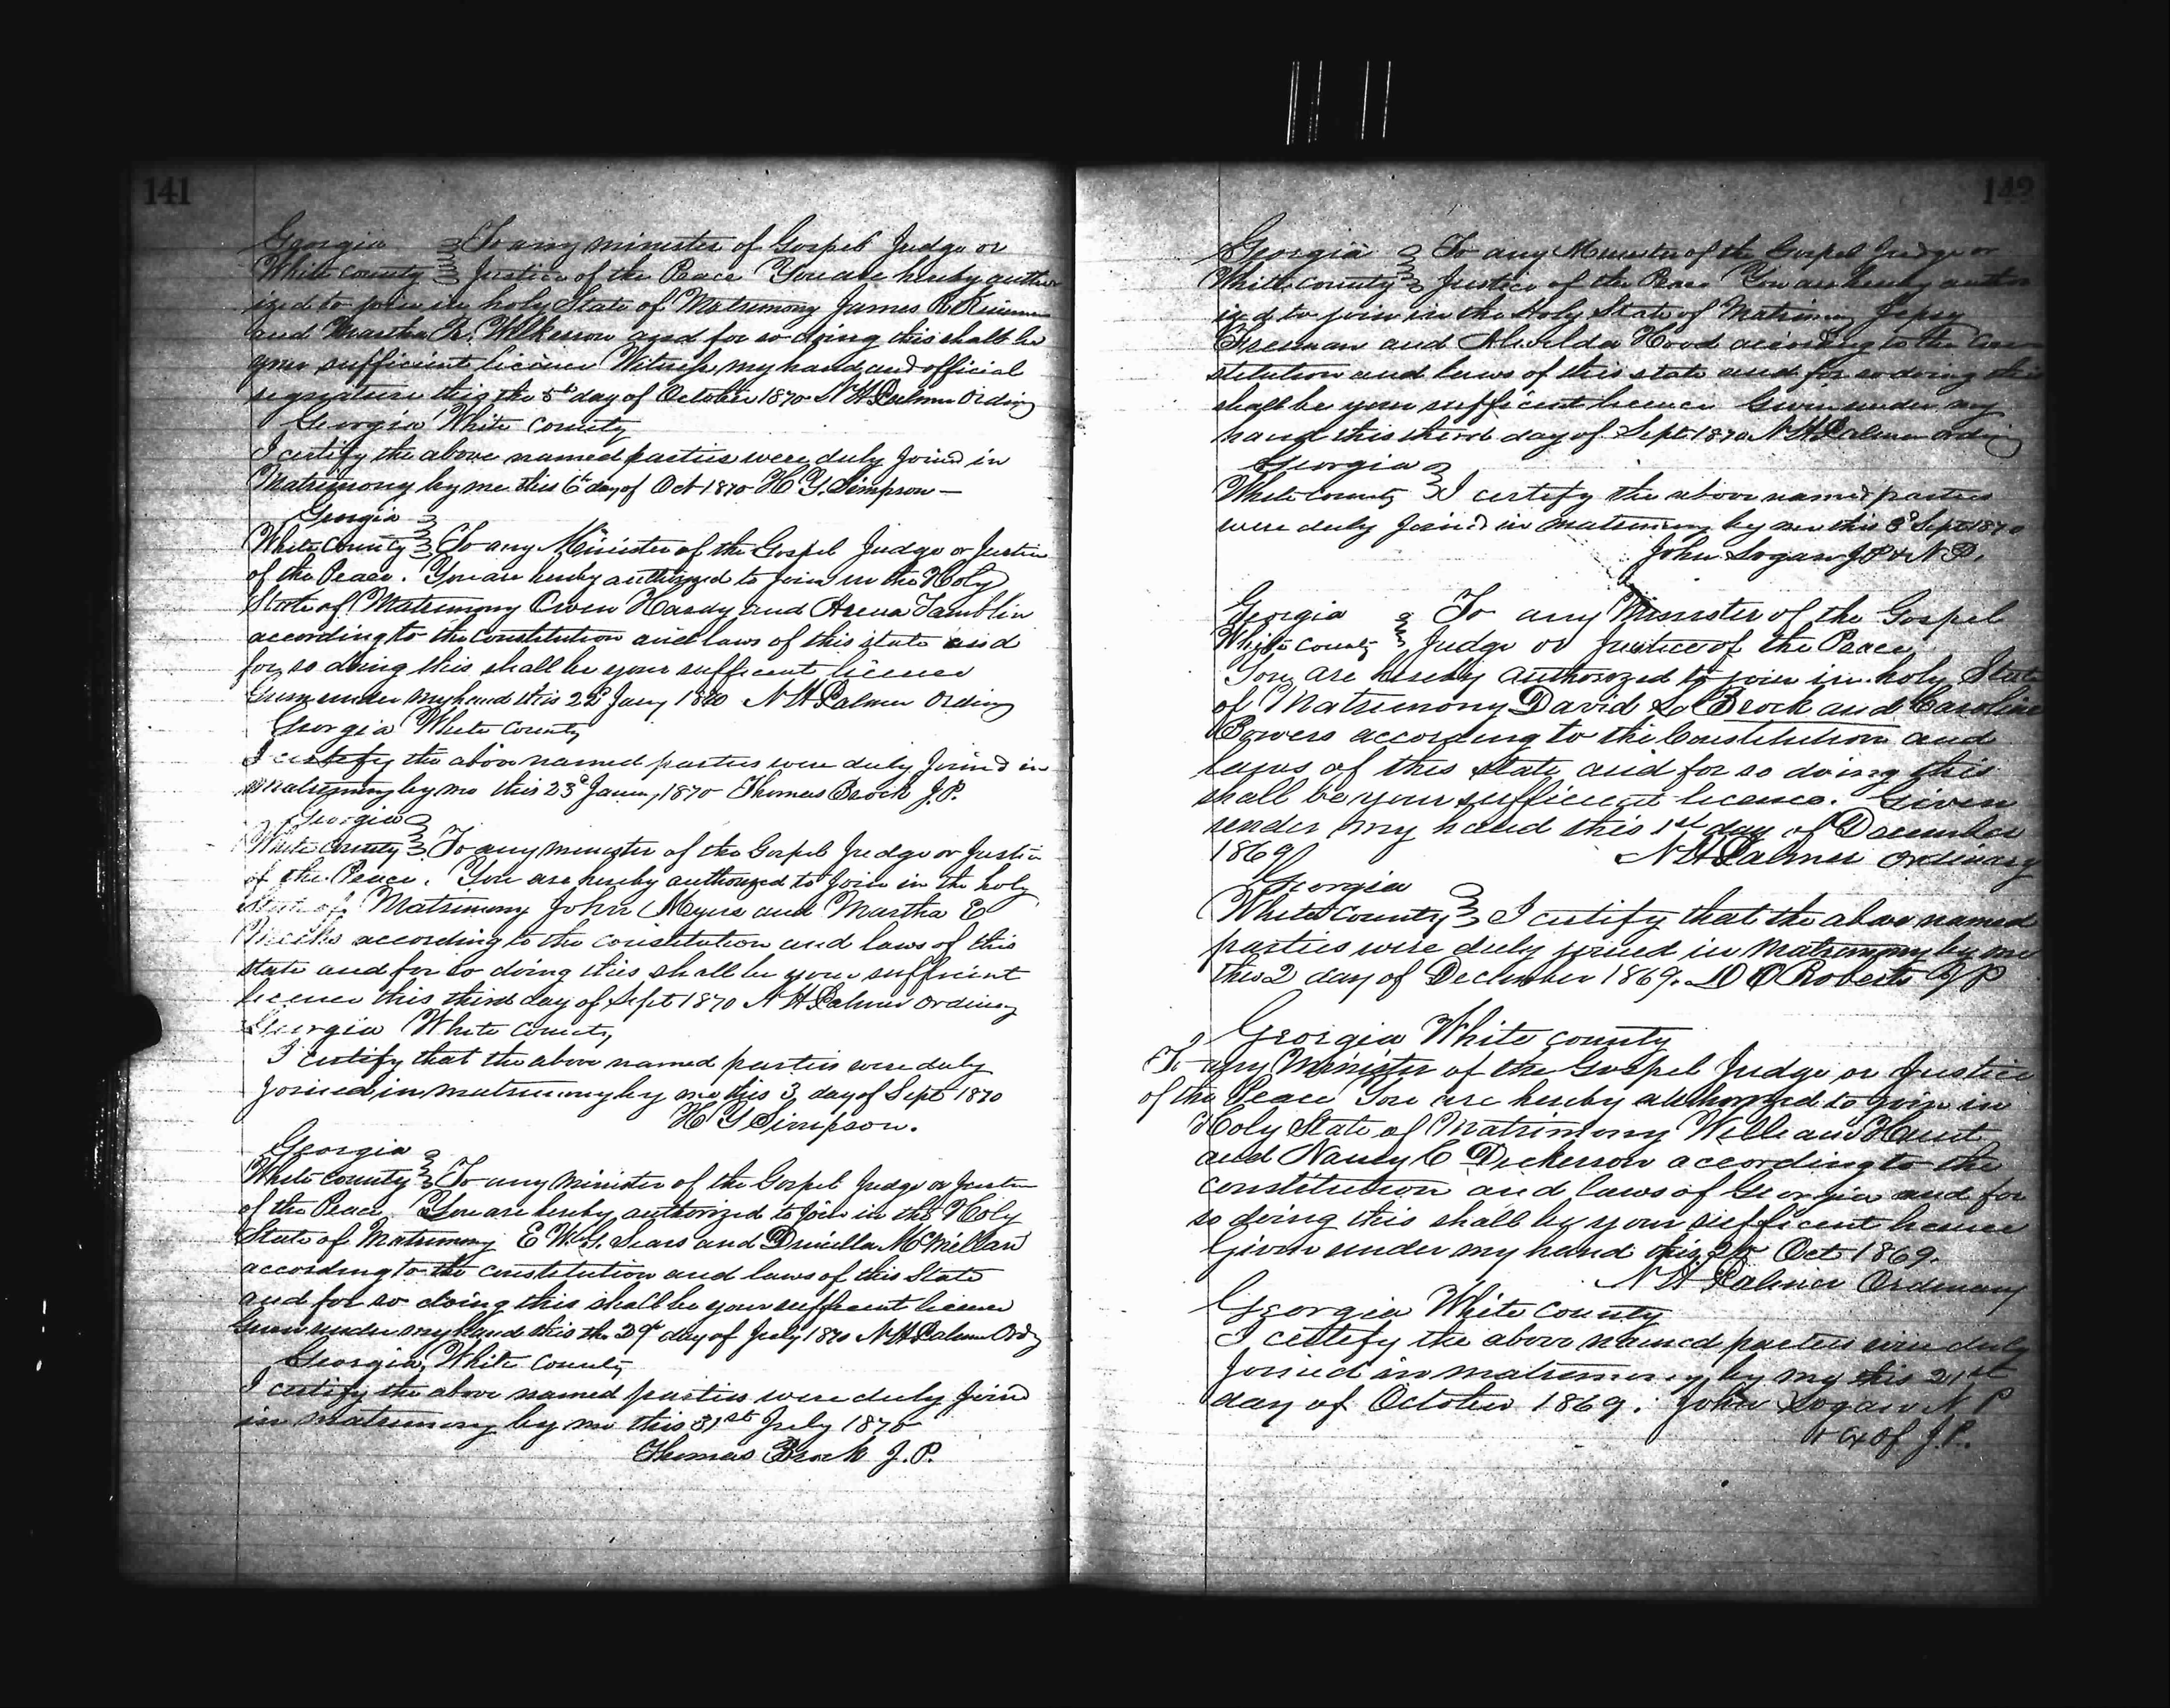 141
Georgia To any minister of Gospel Judge or
White county Justice of the Peace You are hereby author
ized to join in holy State of Matrimony James R
and Martha R. Wilkerson and for so doing this shall be
your sufficient licence Witness my hand and official
signature this the 5th day of October 1870 N H Palmer Ordiny
Georgia White County
I certify the above named parties were duly joind in
Matrimony by me this 6th day of Oct 1870 H. Y. Simpson
Georgia
White County To any Minister of the Gospel Judge or Justice
of the Peace. You are hereby authorized to join in the Holy
State of Matrimony Owen Hardy and Tamblin
according to the constitution and laws of this state and
for so doing this shall be your sufficient licence
Given under my hand this 22d Jany 1870 N H Palmer Ordiny
Georgia White County
I certify the above named parties were duly joind in
matrimony by me this 23d 1870 Thomas Brock J.P.
Georgia
White County To any minister of the Gospel Judge or Justice
of the Peace. You are hereby authorized to join in the holy
State of Matrimony John Meyers and Martha E
according to the constitution and laws of this
state and for so doing this shall be your sufficient
licence this third day of Sept 1870 N H Palmer Ordiny
Georgia White County
I certify that the above named parties were duly
joined in matrimony by me this 3 day of Sept 1870
H Y Simpson.
Georgia
White County To any minister of the Gospel Judge or Justice
of the Peace. You are hereby authorized to join in the Holy
State of Matrimony E Sears and McMillan
according to the constitution and laws of this State
and for so doing this shall be your sufficient licence
Given under my hand this the 29th day of July 1870 N H Palmer Ordy
Georgia, White County
I certify the above named parties were duly joind
in matrimony by me this 31st July 1870
Thomas Brock J.P.
142
Georgia To any Minister of the Gospel Judge or
White County Justice of the Peace You are hereby author
izd to join in the Holy State of Matrimony
Freeman and Hood according to the Con
stitution and laws of this state and for so doing this
shall be your sufficient licence Given under my
hand this third day of Sept 1870 N H Palmer Ordiny
Georgia
White County I certify the above named parties
were duly joind in matrimony by me this 3d Sept 1870
John Logan J P & N.P.
Georgia To any Minister of the Gospel
White County Judge or Justice of the Peace.
You are hereby authorized to join in holy State
of Matrimony David L Brock and Caroline
Bowers according to the Constitution and
laws of this state and for so doing this
shall be your sufficient licence. Given
under my hand this 1st day of December
1869 N H Palmer Ordinary
Georgia
White County I certify that the above named
parties were duly joined in Matrimony by me
this 2 day of December 1869. D O Roberts J P
Georgia White County
To any Minister of the Gospel Judge or Justice
of the Peace You are hereby authorized to join in
Holy State of Matrimony William Hunt
and Nancy C Dickerson according to the
constitution and laws of Georgia and for
so doing this shall be your sufficient licence
Given under my hand this Oct 1869.
N H Palmer Ordinary
Georgia White County
I certify the above named parties were duly
joined in matrimony by my this 21st
day of October 1869. John Logan N P
& of J.P.